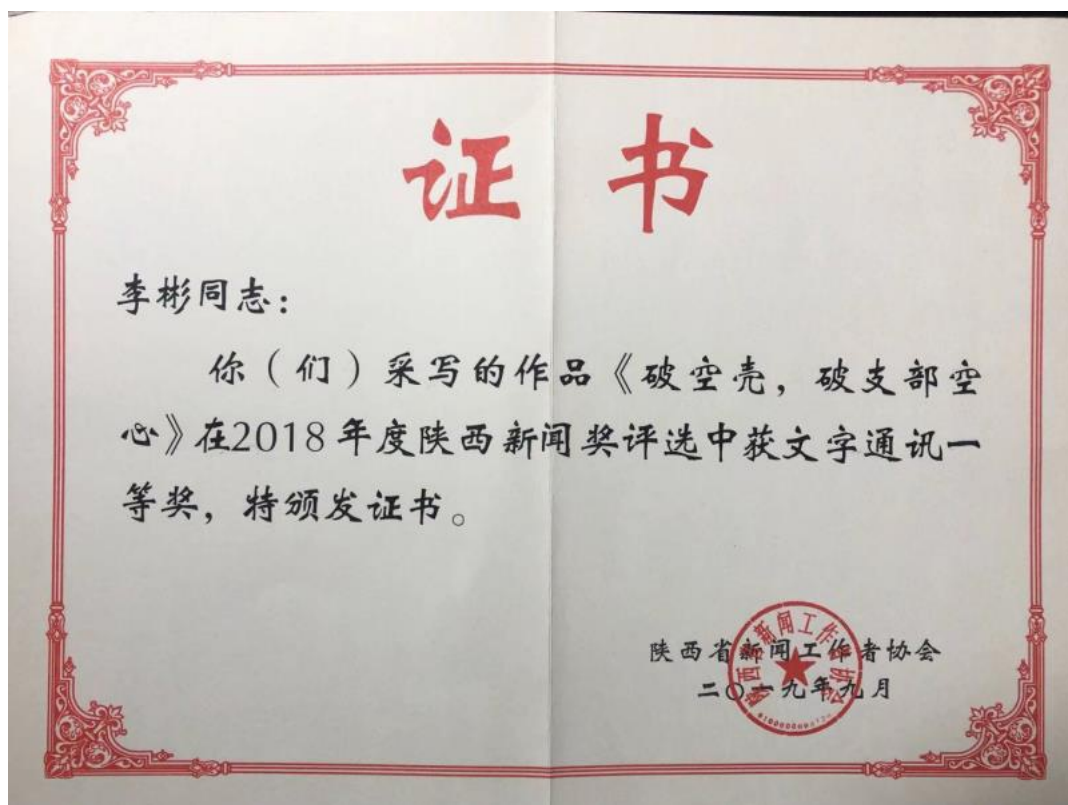 证书
李彬同志：
你（们）采写的作品《破空壳，破支部空
心》在2018年度陕西新闻奖评选中获文字通讯一
等奖，特颁发证书。
陕西省新闻工作者协会
二〇一九年九月
陕西省新闻工作者协会